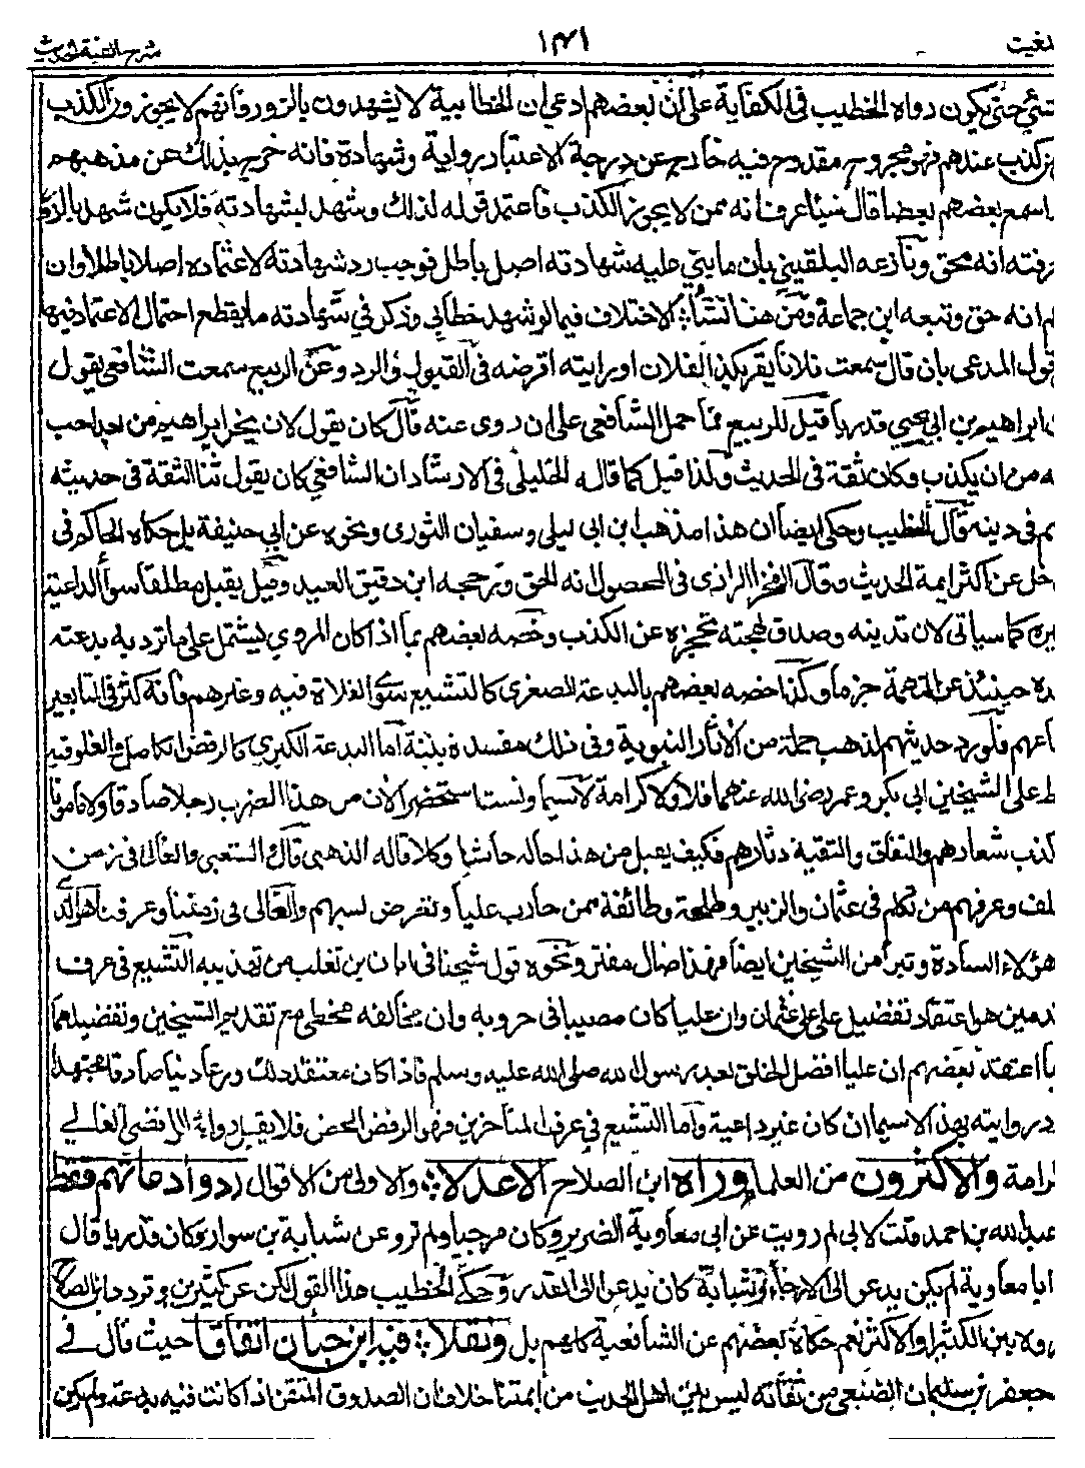 شرح الفية الحديث ١٤١
حتى يكون رواه الخطيب في الكفاية على ان بعضهم ادعى ان الخطابية لا يشهدون بالزور فانهم لا يجوزون الكذب
كذب عندهم فهو مجروح مقدوح فيه خارج عن درجة الاعتبار رواية وشهادة فانه خرج بذلك عن مذهبهم
سمع بعضهم بعضا قال شيئا عرف انه ممن لا يجوز الكذب فاعتمد قوله لذلك وشهد بشهادته فلا يكون شهد بالزور
انه محق ونازعه البلقيني بان ما بنى عليه شهادته اصل باطل فوجب رد شهادته لاعتماده اصلا باطلا وان
انه حق وتبعه ابن جماعة ومن هنا نشأ الاختلاف فيما لو شهد خطابي وذكر في شهادته ما يقطع احتمال الاعتماد فيها
قول المدعى بان قال سمعت فلانا يقر بكذا لفلان او رايته اقرضه في القبول والرد وعن الربيع سمعت الشافعي يقول
ابراهيم بن ابي يحيى قدريا قيل للربيع فما حمل الشافعي على ان روى عنه قال كان يقول لان يخر ابراهيم من بعد احب
من ان يكذب وكان ثقة في الحديث ولذا قيل كما قاله الخليلي في الارشاد ان الشافعي كان يقول ثنا الثقة في حديثه
في دينه قال الخطيب وحكى ايضا ان هذا مذهب ابن ابي ليلى وسفيان الثوري ونحوه عن ابي حنيفة بل حكاه الحاكم في
عن اكثر ايمة الحديث وقال الفخر الرازي في المحصول انه الحق ورجحه ابن دقيق العيد وقيل يقبل مطلقا سوا الداعية
كما سياتي لان تدينه وصدق لهجته تحجزه عن الكذب وخصه بعضهم بما اذا كان المروي يشتمل على ما ترد به بدعته
حينئذ عن التهمة جزما وكذا خصه بعضهم بالبدعة الصغرى كالتشيع سوى الغلاة فيه وغيرهم فانه كثر في التابعين
فلو رد حديثهم لذهب جملة من الآثار النبوية وفي ذلك مفسدة بينة اما البدعة الكبرى كالرفض الكامل والغلو فيه
على الشيخين ابي بكر وعمر رضي الله عنهما فلا ولا كرامة لا سيما ولست استحضر الآن من هذا الضرب رجلا صادقا ولا مامونا
شعارهم والنفاق والتقية دثارهم فكيف يقبل من هذا حاله حاشا وكلا قاله الذهبي قال الشيعي والغالي في زمن
وعرفهم من تكلم في عثمان والزبير وطلحة وطائفة ممن حارب عليا وتعرض لسبهم والغالي في زمننا وعرفنا هو الذي
هؤلاء السادة وتبرأ من الشيخين ايضا فهذا ضال مفتر ونحوه قول شيخنا في ابان بن تغلب من تهذيبه التشيع في عرف
هو اعتقاد تفضيل علي على عثمان وان عليا كان مصيبا في حروبه وان مخالفه مخطي مع تقديم الشيخين وتفضيلهما
اعتقد بعضهم ان عليا افضل الخلق بعد رسول الله صلى الله عليه وسلم فاذا كان معتقد ذلك ورعا دينا صادقا مجتهدا
روايته بهذا لا سيما ان كان غير داعية واما التشيع في عرف المتأخرين فهو الرفض المحض فلا يقبل رواية الرافضي الغالي
والاكثرون من العلما وراه ابن الصلاح الاعدلا والاولى من الاقوال ردوا دعاتهم فقط
عبد الله بن احمد قلت لابي لم رويت عن ابي معاوية الضرير وكان مرجيا ولم ترو عن شبابة بن سوار وكان قدريا قال
ابا معاوية لم يكن يدعو الى الارجاء وشبابة كان يدعو الى القدر وحكى الخطيب هذا القول لكن عن كثيرين وتردد ابن الصلاح
بين الكثير او الاكثر نعم حكاه بعضهم عن الشافعية كلهم بل ونقلا فيه ابن حبان اتفاقا حيث قال في
جعفر بن سليمان الضبعي من ثقاته ليس بين اهل الحديث من ايمتنا خلاف ان الصدوق المتقن اذا كانت فيه بدعة ولم يكن